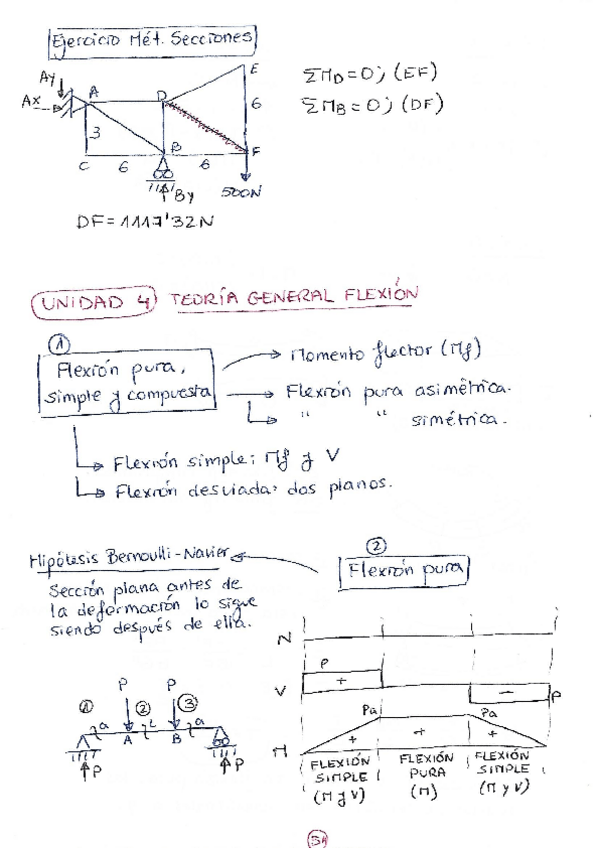 Ejercicio Mét. Secciones
Ay
Ax
A
D
E
ΣMD=0; (EF)
ΣMB=0; (DF)
3
6
C
6
B
6
F
By
500N
DF=1117'32N
UNIDAD 4 TEORÍA GENERAL FLEXIÓN
①
Flexión pura,
simple y compuesta
Momento flector (Mf)
Flexión pura asimétrica.
" " simétrica.
Flexión simple: Mf y V
Flexión desviada: dos planos.
Hipótesis Bernoulli-Navier
Sección plana antes de
la deformación lo sigue
siendo después de ella.
②
Flexión pura
N
V
P
+
-
P
P
P
① ② ③
a
L
a
A
B
P
P
M
Pa
Pa
+
+
+
FLEXIÓN
SIMPLE
(M y V)
FLEXIÓN
PURA
(M)
FLEXIÓN
SIMPLE
(M y V)